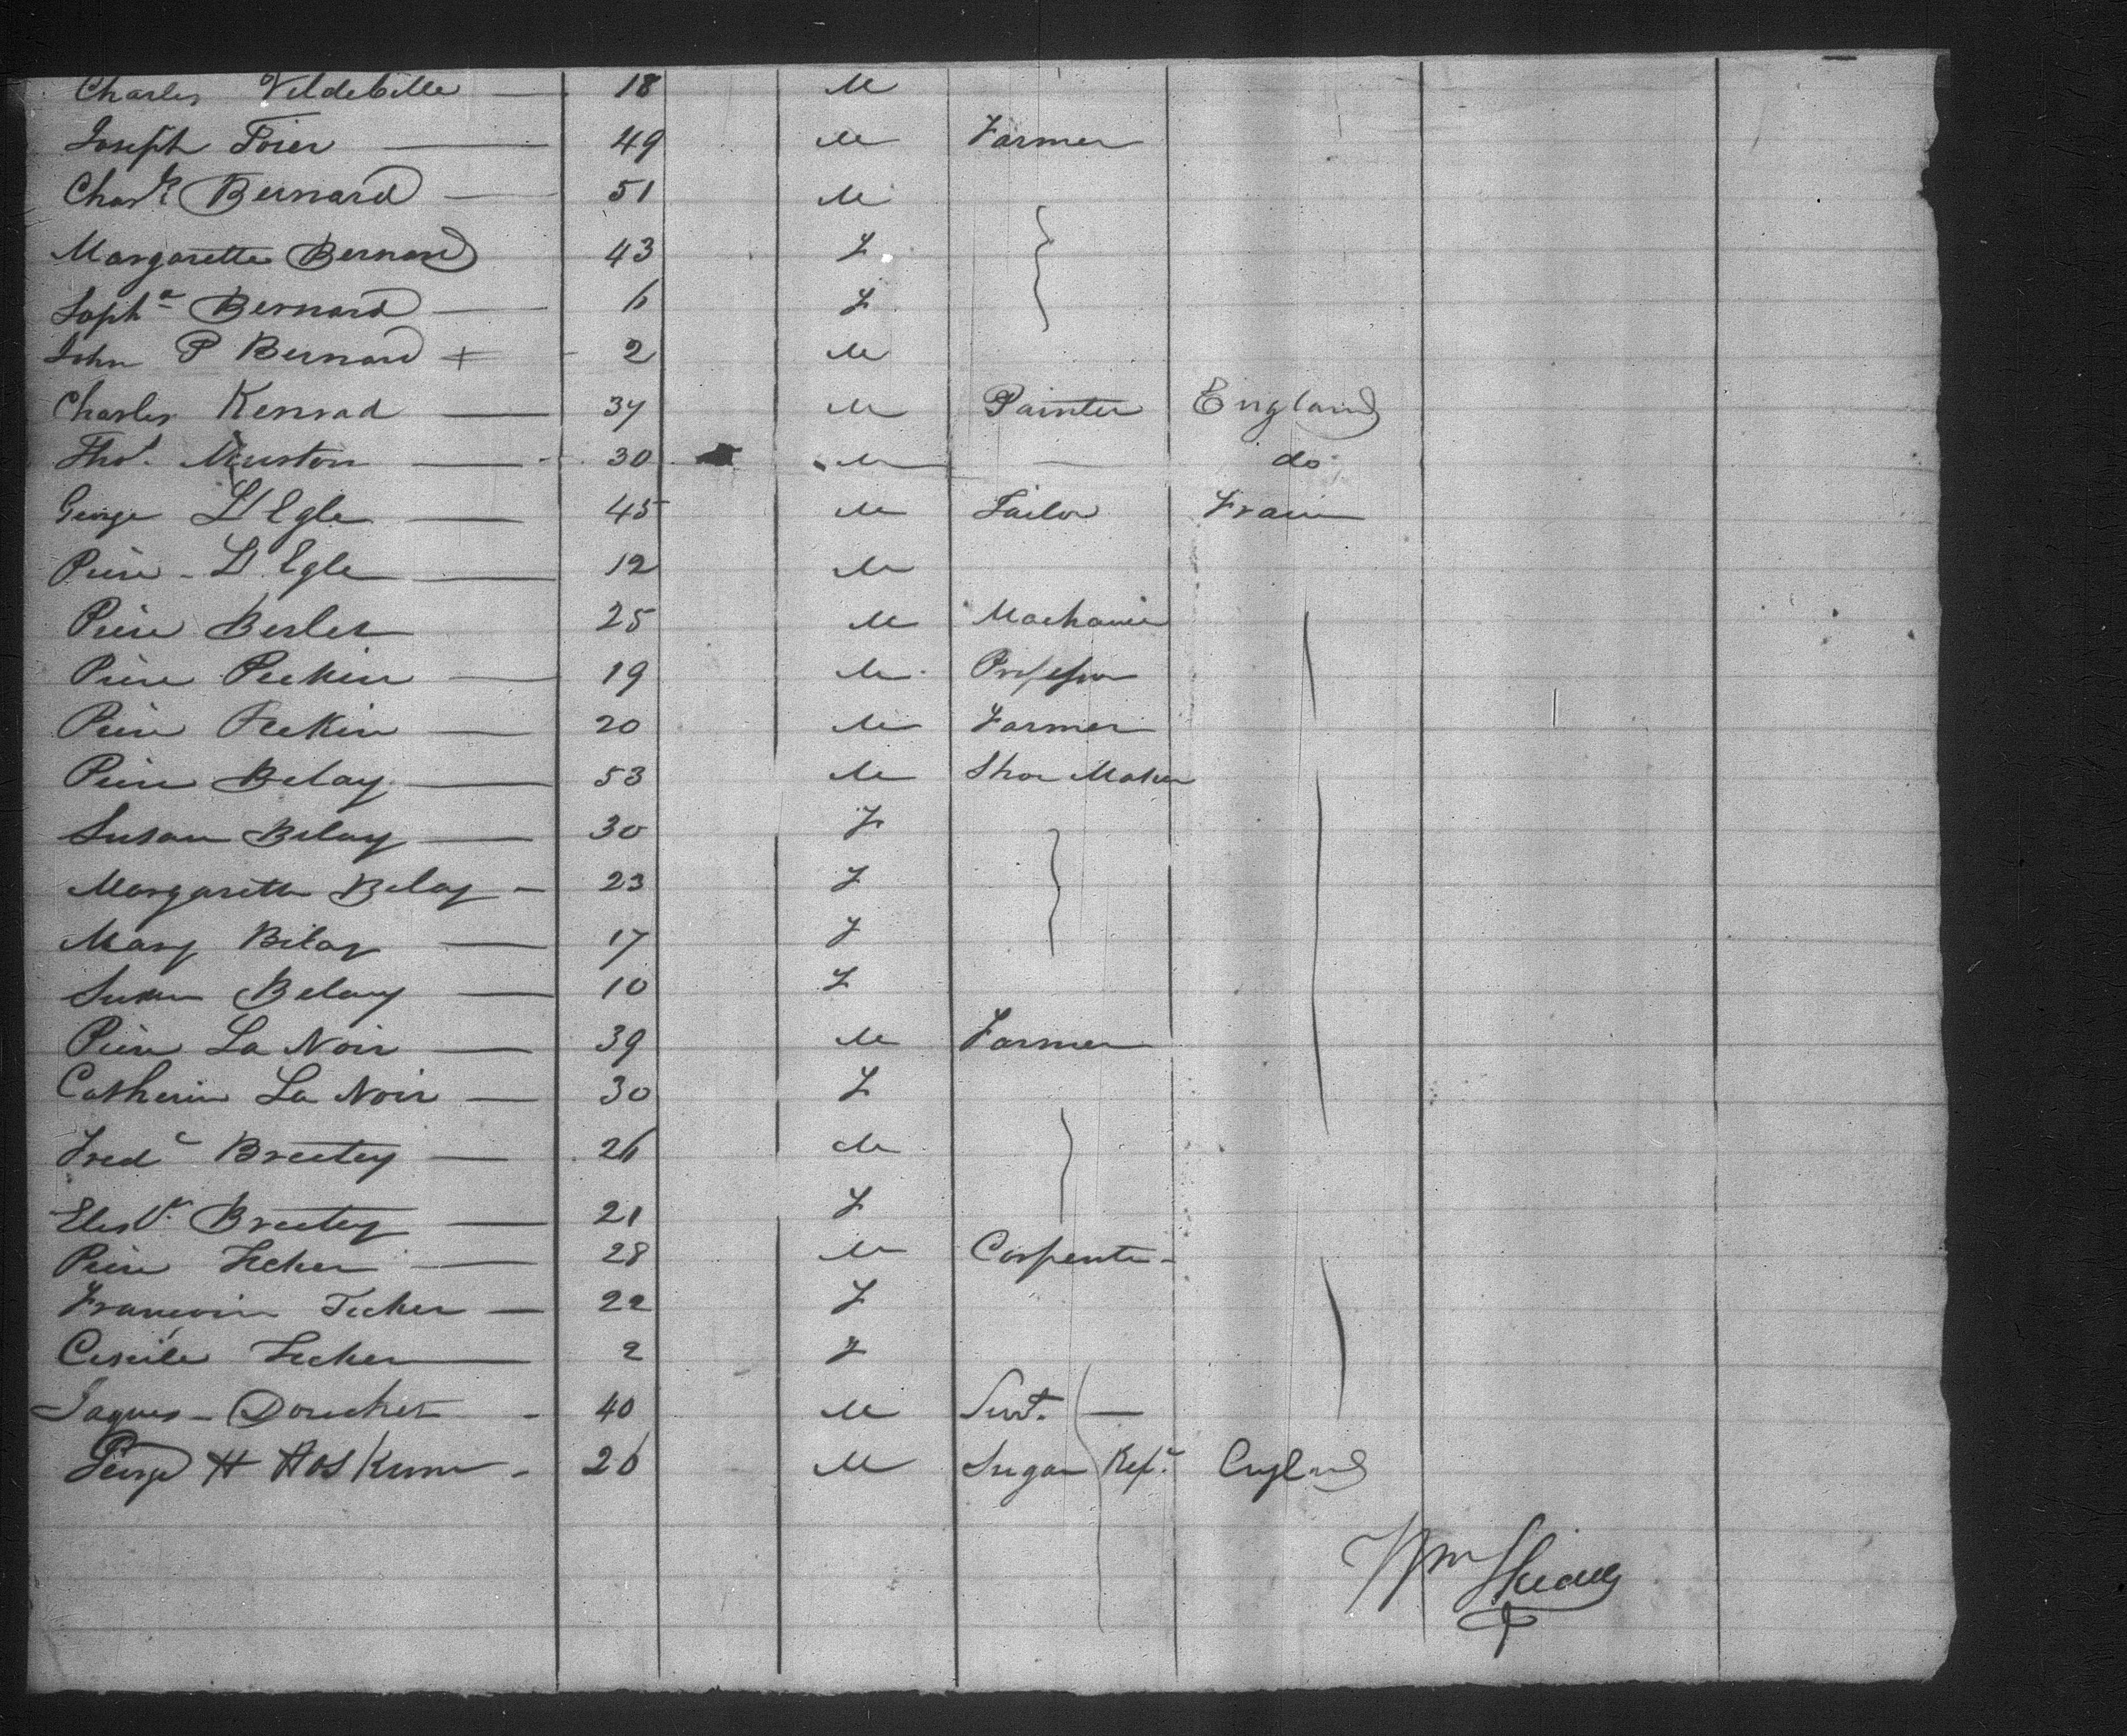 Charles Veldebille — 18 M
Joseph Foier — 49 M Farmer
Charls Bernard — 51 M
Margarette Bernard 43 F
Sopha Bernard — 6 F
John P Bernard + - 2 M
Charles Konrad — 37 M Painter England
Thos. Muston — 30 M — do
George L'Egle — 45 M Tailor Fran
Piere - L'Egle — 12 M
Piere Berlet 25 M Machanic
Piere Peckin — 19 M Professor
Piere Peckin — 20 M Farmer
Piere Belay — 53 M Shoe Maker
Susan Belay — 30 F
Margarette Belay - 23 F
Mary Belay — 17 F
Susan Belay — 10 F
Piere La Noir — 39 M Farmer
Catherin La Noir — 30 F
Fredc Breetey — 26 M
Elisth Breetey — 21 F
Piere Fecker — 28 M Carpenter
Francoin Fecker — 22 F
Cecile Fecker — 2 F
Jaques - Doucher - 40 M Servt. —
George H Hoskinn - 26 M Sugar Refr England
Wm